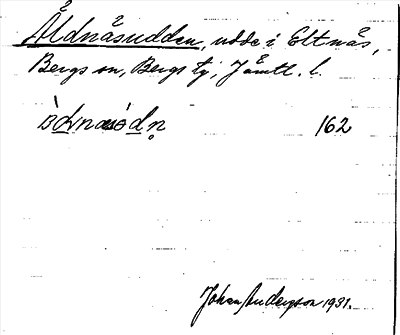 Åldnäsudden, udde i Eltnäs,
Bergs sn, Bergs tg, Jämtl. l.
162
Johan Anderson 1931.